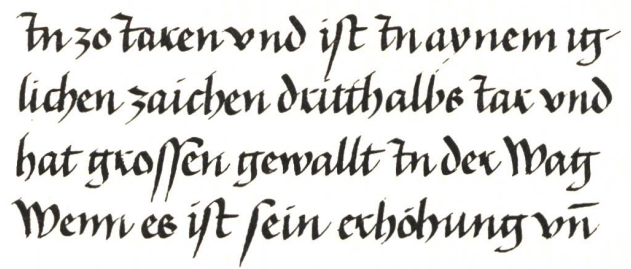 In 30 Jaren vnd iſt In aynem ig-
lichen zaichen dritthalbs Jar vnd
hat groſſen gewallt In der Wag
Wenn es iſt ſein erhöhung vn̄